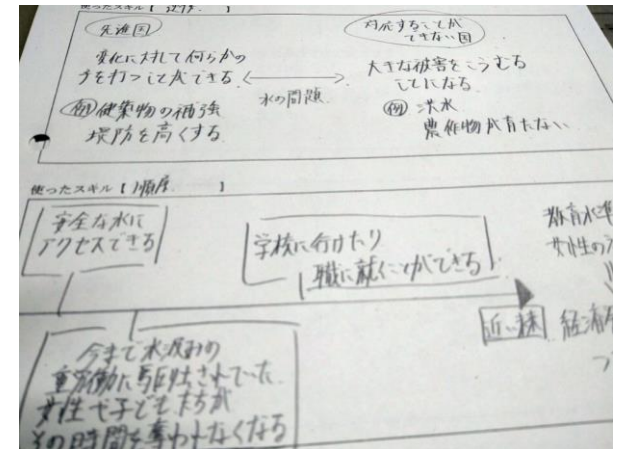 使ったスキル【 比較 】
先進国
変化に対して何らかの
手を打つことができる
例 建築物の補強
堤防を高くする
水の問題
対応することが
できない国
大きな被害をこうむる
ことになる
例 洪水
農作物が育たない
使ったスキル【 順序 】
安全な水に
アクセスできる
学校に行けたり
職に就くことができる
教育水準
女性の
近い未来
経済
今まで水汲みの
重労働に駆り出されていた
女性や子どもたちが
その時間を奪われなくなる